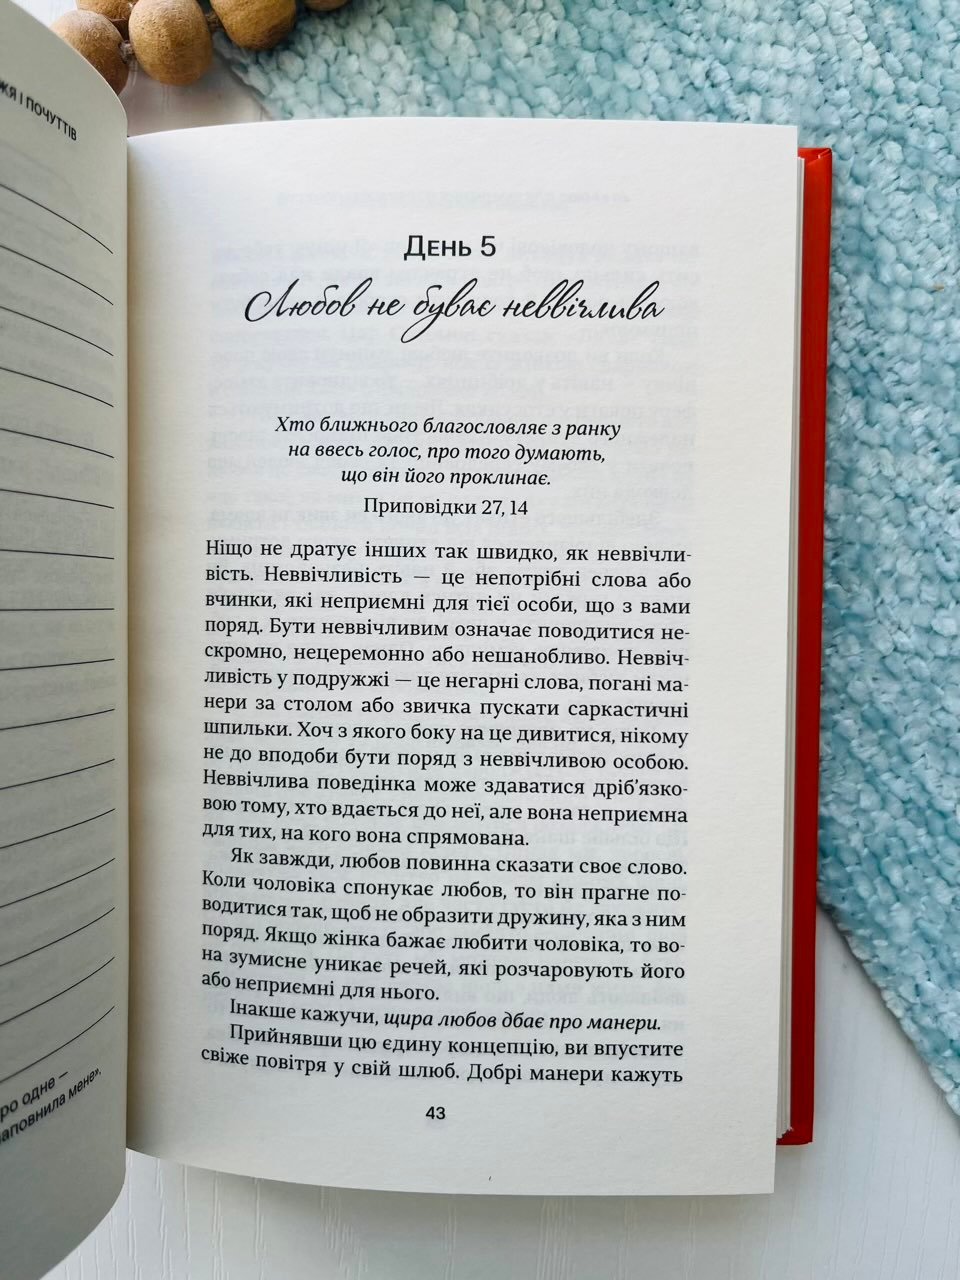 ЖЯ І ПОЧУТТІВ
ро одне —
аповнила мене».
День 5
Любов не буває неввічлива
Хто ближнього благословляє з ранку
на ввесь голос, про того думають,
що він його проклинає.
Приповідки 27, 14
Ніщо не дратує інших так швидко, як неввічли-
вість. Неввічливість — це непотрібні слова або
вчинки, які неприємні для тієї особи, що з вами
поряд. Бути неввічливим означає поводитися не-
скромно, нецеремонно або нешанобливо. Неввіч-
ливість у подружжі — це негарні слова, погані ма-
нери за столом або звичка пускати саркастичні
шпильки. Хоч з якого боку на це дивитися, нікому
не до вподоби бути поряд з неввічливою особою.
Неввічлива поведінка може здаватися дріб’язко-
вою тому, хто вдається до неї, але вона неприємна
для тих, на кого вона спрямована.
Як завжди, любов повинна сказати своє слово.
Коли чоловіка спонукає любов, то він прагне по-
водитися так, щоб не образити дружину, яка з ним
поряд. Якщо жінка бажає любити чоловіка, то во-
на зумисне уникає речей, які розчаровують його
або неприємні для нього.
Інакше кажучи, щира любов дбає про манери.
Прийнявши цю єдину концепцію, ви впустите
свіже повітря у свій шлюб. Добрі манери кажуть
43